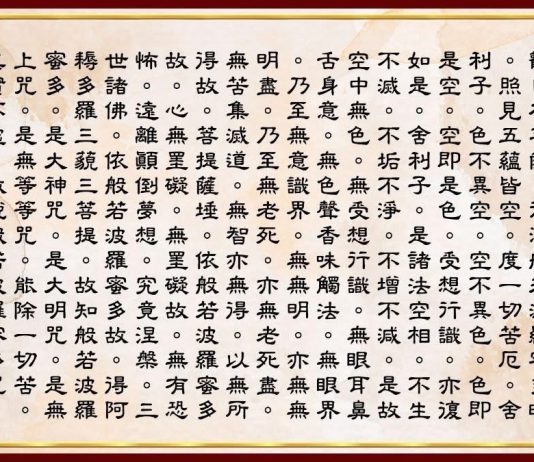 。照見五蘊皆空。度一切苦厄。舍
利子。色不異空。空不異色。色即
是空。空即是色。受想行識。亦復
如是。舍利子。是諸法空相。不生
不滅。不垢不淨。不增不減。是故
空中無色。無受想行識。無眼耳鼻
舌身意。無色聲香味觸法。無眼界
。乃至無意識界。無無明。亦無無
明盡。乃至無老死。亦無老死盡。
無苦集滅道。無智亦無得。以無所
得故。菩提薩埵。依般若波羅蜜多
故。心無罣礙。無罣礙故。無有恐
怖。遠離顛倒夢想。究竟涅槃。三
世諸佛。依般若波羅蜜多故。得阿
耨多羅三藐三菩提。故知般若波羅
蜜多。是大神咒。是大明咒。是無
上咒。是無等等咒。能除一切苦。